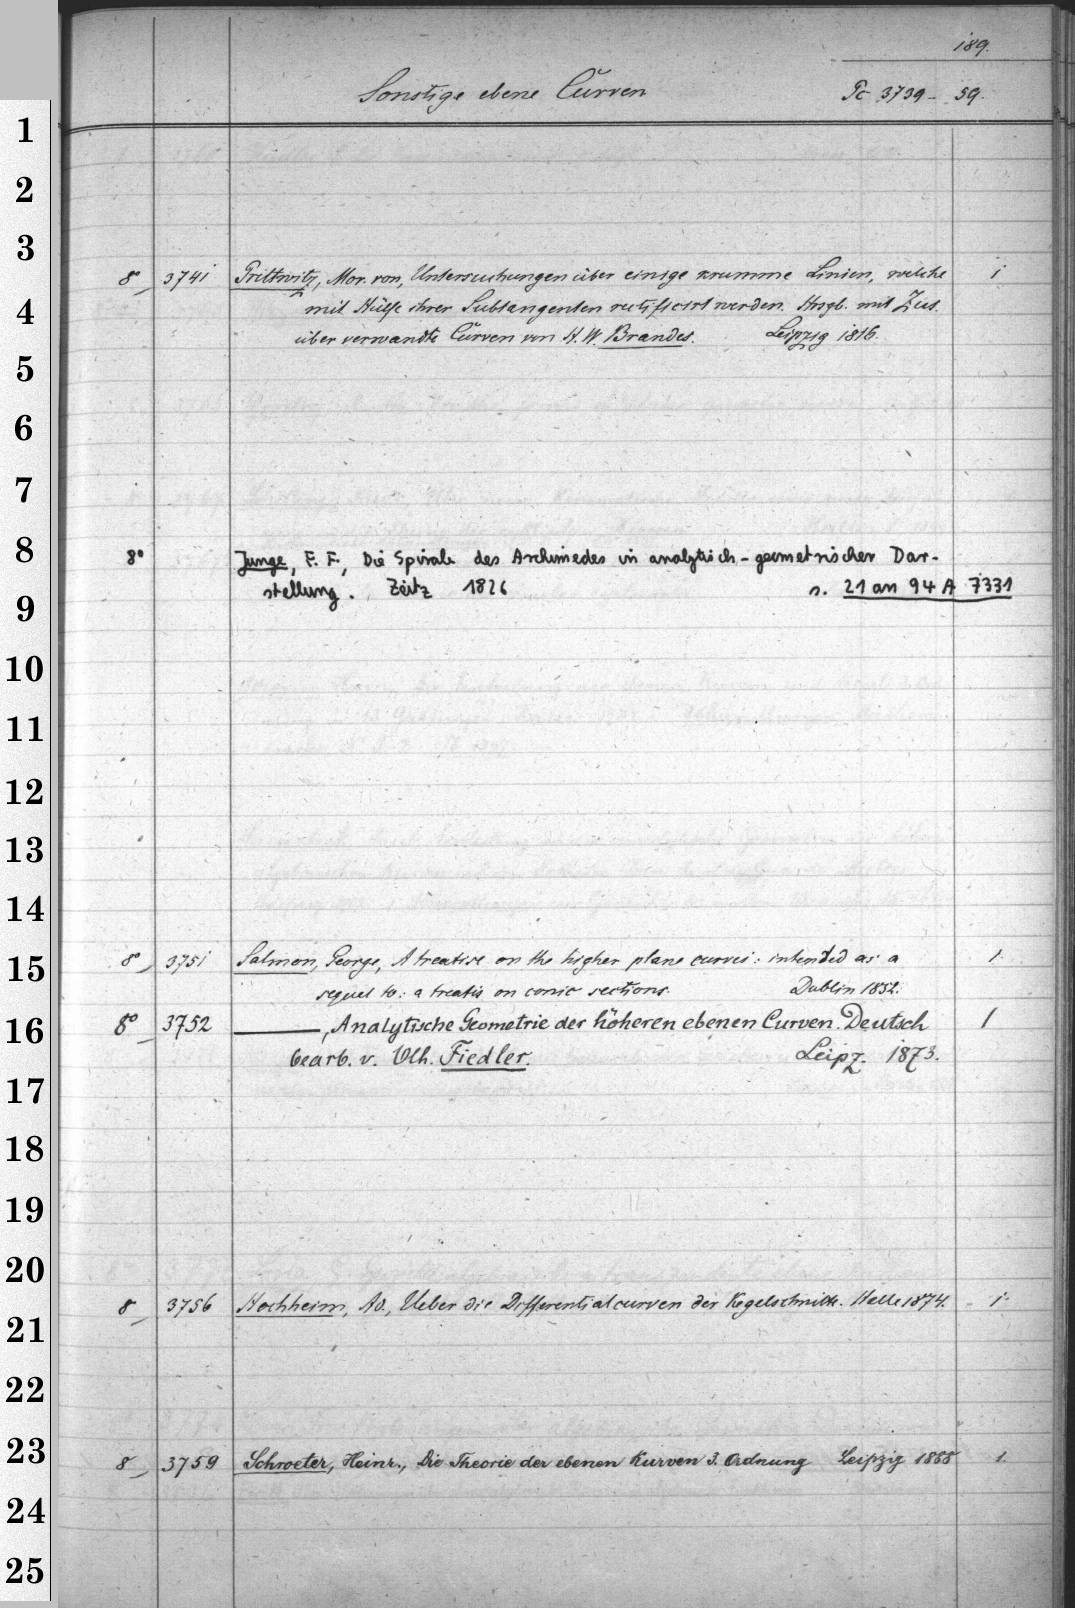 189.
Sonstige ebene Curven Pc 3739 - 59.
1
2
3
8° 3741 Prittwitz, Mor. von, Untersuchungen über einige krumme Linien, welche 1
4 mit Hülfe ihrer Subtangenten rectificirt werden. Hrsgb. mit Zus.
über verwandte Curven von H. W. Brandes. Leipzig 1816.
5
6
7
8 8° Junge, F. F., Die Spirale des Archimedes in analytisch-geometrischer Dar-
9 stellung. Zeitz 1826 s. 21 an 94 A 7331
10
11
12
13
14
15 8° 3751 Salmon, George, A treatise on the higher plane curves: intended as a 1.
sequel to: a treatis on conic sections. Dublin 1852.
16 8° 3752 ———, Analytische Geometrie der höheren ebenen Curven. Deutsch 1
bearb. v. Wlh. Fiedler. Leipz. 1873.
17
18
19
20
8 3756 Hochheim, Ad., Ueber die Differentialcurven der Kegelschnitte. Halle 1874. 1.
21
22
23 8 3759 Schroeter, Heinr., Die Theorie der ebenen Kurven 3. Ordnung Leipzig 1888 1.
24
25